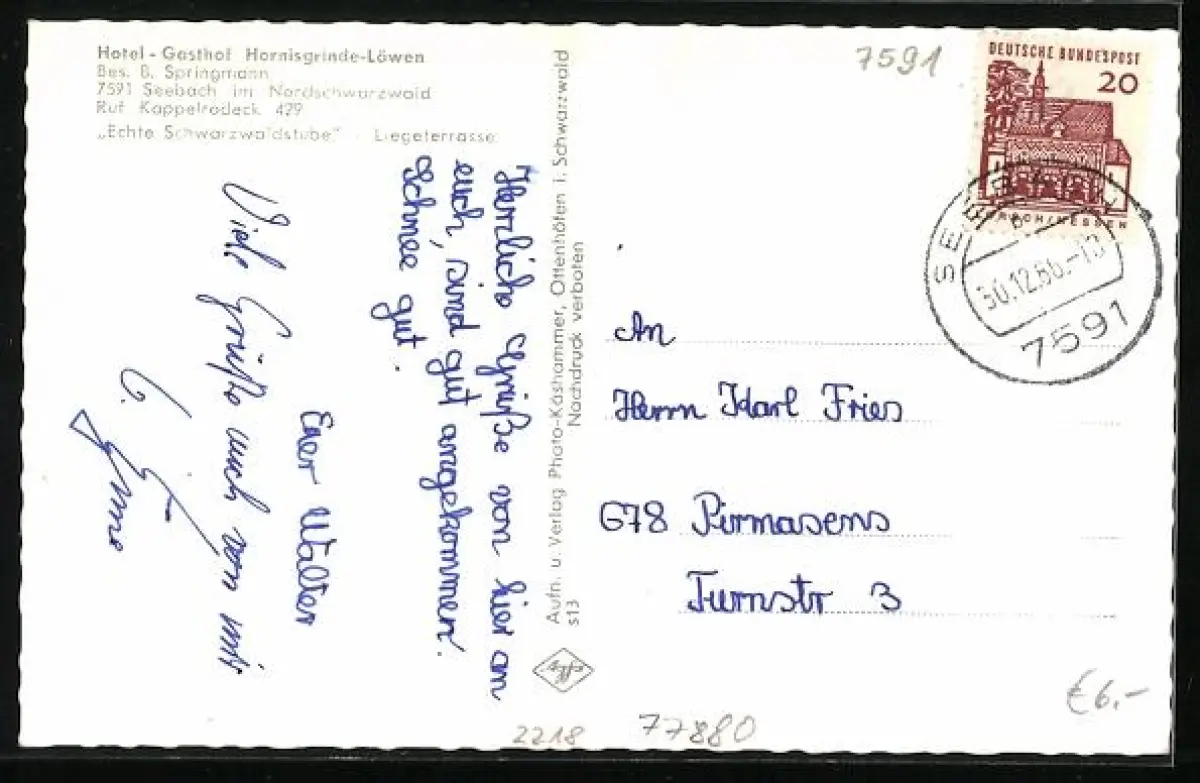 Hotel - Gasthof Hornisgrinde-Löwen
Bes. B. Springmann
7591 Seebach im Nordschwarzwald
Ruf Kappelrodeck 429
„Echte Schwarzwaldstube" Liegeterrasse
Herzliche Grüße von hier an
euch, sind gut angekommen.
Schnee gut.
Euer Walter
Viele Grüße auch von mir
Aufn. u. Verlag Photo-Kashammer, Ottenhöfen i. Schwarzwald
s13 Nachdruck verboten
7591
DEUTSCHE BUNDESPOST
20
30.12.66.-10
7591
An
Herrn Karl Fries
678 Pirmasens
Turnstr 3
€6,-
2218
77880